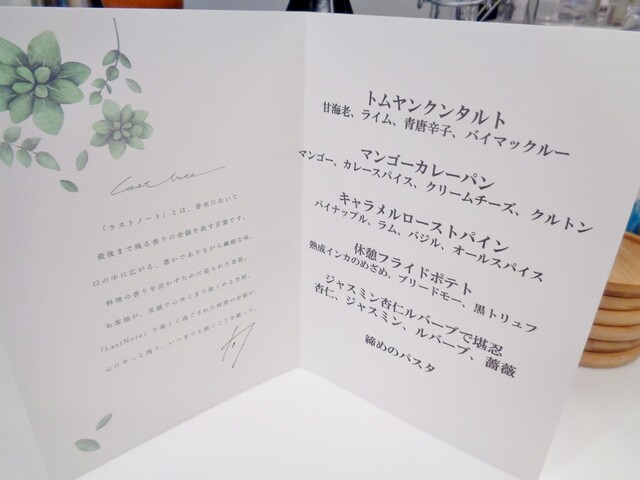 Last Note
「ラストノート」とは、香水において
最後まで残る香りの余韻を表す言葉です。
口の中に広がる、豊かでありながら繊細な味。
料理の香りを活かすために造られた食器。
お客様が、笑顔で心ゆくまで楽しめる空間。
「LastNote」で楽しく過ごされた時間の余韻が、
心にそっと残り、いつまでも続くことを願って。
トムヤンクンタルト
甘海老、ライム、青唐辛子、バイマックルー
マンゴーカレーパン
マンゴー、カレースパイス、クリームチーズ、クルトン
キャラメルローストパイン
パイナップル、ラム、バジル、オールスパイス
休憩フライドポテト
熟成インカのめざめ、ブリードモー、黒トリュフ
ジャスミン杏仁ルバーブで堪忍
杏仁、ジャスミン、ルバーブ、薔薇
締めのパスタ